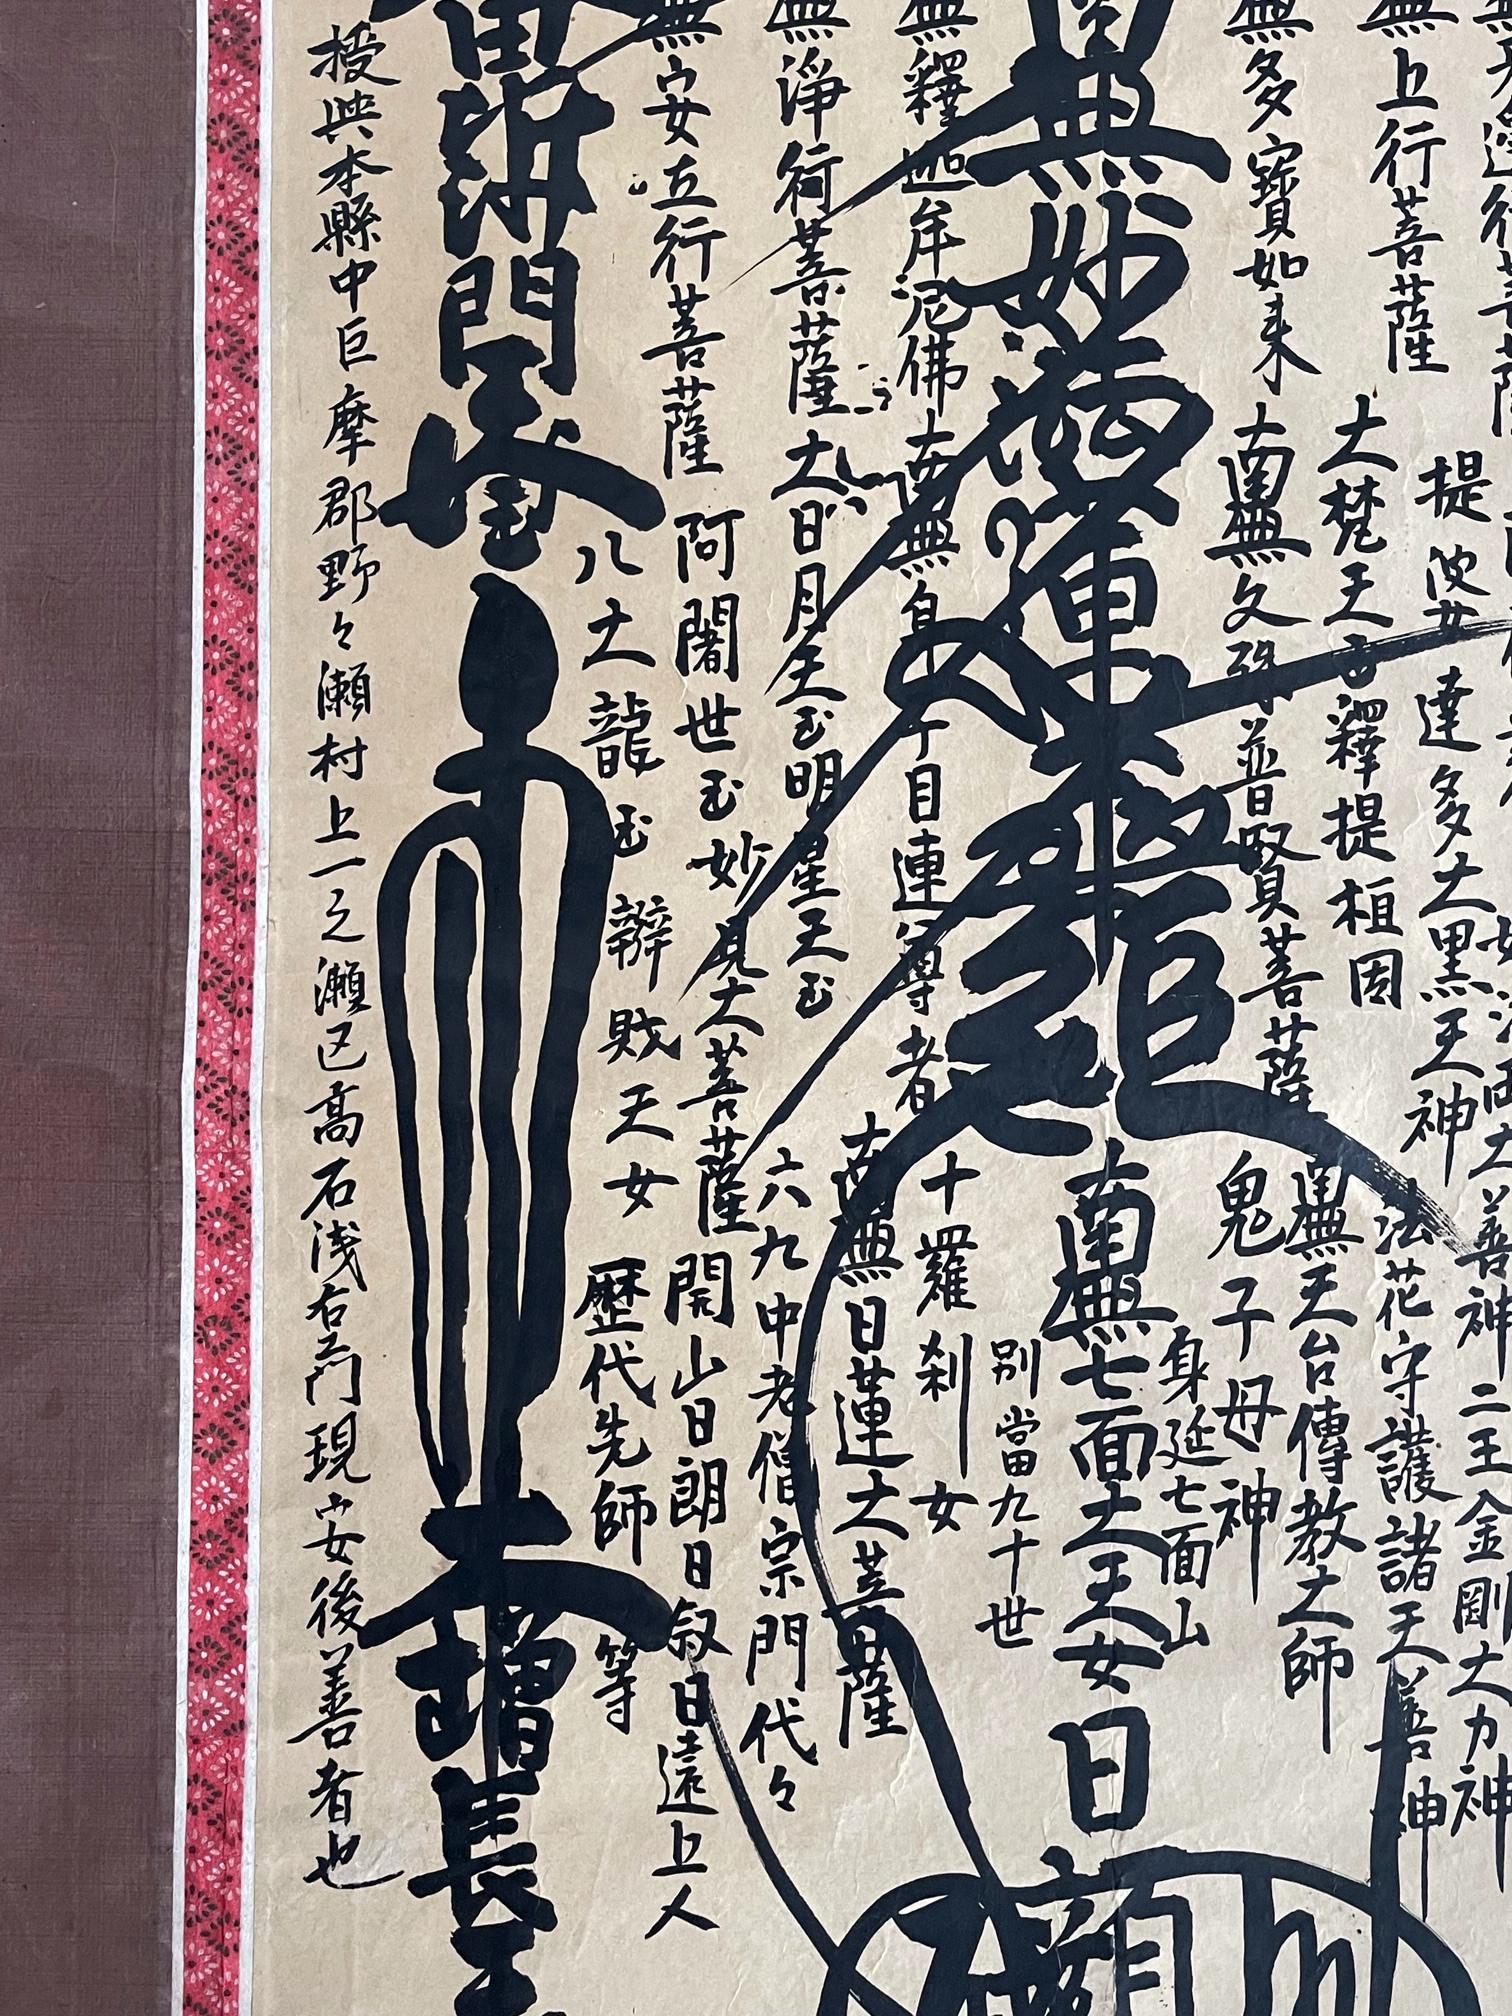 無大邊行菩薩
無上行菩薩
提婆達多大黒天神
法花守護諸天善神
二王金剛大力神
大梵天王釋提桓因
無多寶如来
南無文殊普賢菩薩
鬼子母神
南無天台傳教大師
無妙法蓮華経
南無七面大天女日
身延七面山
別當九十世
無釋迦牟尼佛
南無身子目連尊者
十羅刹女
無淨行菩薩
大日月天王明星天王
南無日蓮大菩薩
無安立行菩薩
阿闍世王
妙見大菩薩
六九中老僧宗門代々
開山日朗日叙日遠上人
八大龍王
辯財天女
歴代先師
等
毘沙門天王
大増長天
授與本縣中巨摩郡野々瀬村上一之瀬区高石浅右エ門現安後善者也